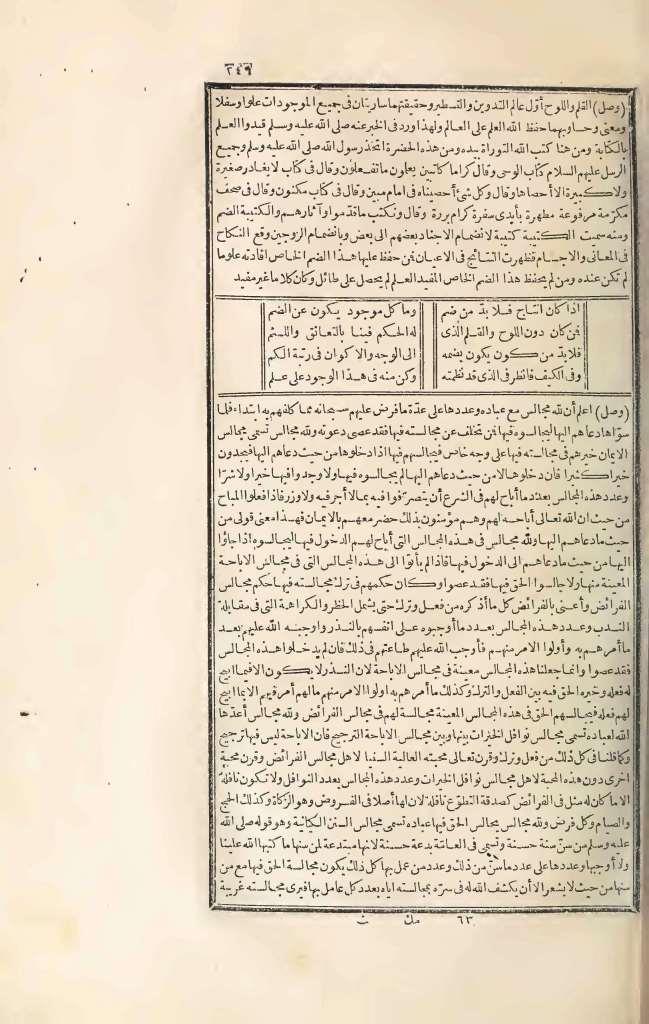 ٢٤٩
(وصل) القلم واللوح أول عالم التدوين والتسطير وحقيقتهما ساريتان فى جميع الموجودات علوا وسفلا
ومعنى وحسا وبهما حفظ الله العلم على العالم ولهذا ورد فى الخبر عنه صلى الله عليه وسلم قيدوا العلم
بالكتابة ومن هنا كتب الله التوراة بيده ومن هذه الحضرة اتخذ رسول الله صلى الله عليه وسلم وجميع
الرسل عليهم السلام كتاب الوحى وقال كراما كاتبين يعلمون ما تفعلون وقال فى كتاب لا يغادر صغيرة
ولا كبيرة الا أحصاها وقال وكل شئ أحصيناه فى امام مبين وقال فى كتاب مكنون وقال فى صحف
مكرمة مرفوعة مطهرة بأيدى سفرة كرام بررة وقال ونكتب ما قدموا وآثارهم والكتيبة الضم
ومنه سميت الكتيبة كتيبة لانضمام الاجناد بعضهم الى بعض وبانضمام الزوجين وقع النكاح
فى المعانى والاجسام فظهرت النتائج فى الاعيان فمن حفظ عليها هذا الضم الخاص افادته علوما
لم تكن عنده ومن لم يحفظ هذا الضم الخاص المفيد العلم لم يحصل على طائل وكان كلاما غير مفيد
اذا كان انتاج فلا بد من ضم وما كل موجود يكون عن الضم
فمن كان دون اللوح والقلم الذى له الحكم فينا بالتعانق واللثم
فلا بد من كون يكون بضمه الى الوجه والاكوان فى رتبة الكم
وفى الكيف فانظر فى الذى قد نظمته وكن منه فى هذا الوجود على علم
(وصل) اعلم أن لله مجالس مع عباده وعددها على عدة ما فرض عليهم سبحانه مما كلفهم به ابتداء فلما
سواها دعاهم اليها ليجالسوه فيها فمن تخلف عن مجالسته فيها فقد عصى دعوته ولله مجالس تسمى مجالس
الايمان خيرهم فى مجالسته فيها على وجه خاص فيجالسهم فيها اذا دخلوها من حيث دعاهم اليها فيجدون
خيرا كثيرا فان دخلوها لا من حيث دعاهم اليها لم يجالسوه فيها ولا وجدوا فيها خيرا ولا شرا
وعدد هذه المجالس بعدد ما أباح لهم فى الشرع أن يتصرفوا فيه بما لا أجر فيه ولا وزر فاذا فعلوا المباح
من حيث ان الله تعالى أباحه لهم وهم مؤمنون بذلك حضر معهم بالايمان فهذا معنى قولى من
حيث ما دعاهم اليها ولله مجالس فى هذه المجالس التى أباح لهم الدخول فيها ليجالسوه اذا جاؤا
اليها من حيث ما دعاهم الى الدخول فيها فاذا لم يأتوا الى هذه المجالس التى فى مجالس الاباحة
المعينة منها ولا جالسوا الحق فيها فقد عصوا وكان حكمهم فى ترك مجالسته فيها حكم مجالس
الفرائض وأعنى بالفرائض كل ما أذكره من فعل وترك حتى يشمل الحظر والكراهة التى فى مقابلة
الندب وعدد هذه المجالس بعدد ما أوجبوه على انفسهم بالنذر واوجبه الله عليهم بعد
ما أمرهم به وأولوا الامر منهم فأوجب الله عليهم طاعتهم فى ذلك فان لم يدخلوا هذه المجالس
فقد عصوا وانما جعلنا هذه المجالس معينة فى مجالس الاباحة لان النذر لا يكون الا فيما ابيح
له فعله وخيره الحق فيه بين الفعل والترك وكذلك ما أمرهم به اولوا الامر منهم ما لهم أمر فيهم الا بما ابيح
لهم فعله فيجالسهم الحق فى هذه المجالس المعينة مجالسة لهم فى مجالس الفرائض ولله مجالس أعدها
الله لعباده تسمى مجالس نوافل الخيرات بينها وبين مجالس الاباحة الترجيح فان الاباحة ليس فيها ترجيح
وكما قلنا فى كل ذلك من فعل وترك وقرن تعالى محبته العالية السنيا لاهل مجالس الفرائض وقرن محبة
اخرى دون هذه المحبة لاهل مجالس نوافل الخيرات وعدد هذه المجالس بعدد النوافل ولا تكون نافلة
الا ما كان له مثل فى الفرائض كصدقة التطوع نافلة لان لها أصلا فى الفروض وهو الزكاة وكذلك الحج
والصيام وكل فرض ولله مجالس يجالس الحق فيها عباده تسمى مجالس السنن الكيانية وهو قوله صلى الله
عليه وسلم من سن سنة حسنة وتسمى فى العامة بدعة حسنة لانها مبتدعة لمن سنها ما كتبها الله علينا
ولا أوجبها وعددها على عدد ما سن من ذلك وعدد من عمل بها كل ذلك يكون مجالسة الحق فيها مع من
سنها من حيث لا يشعر الا أن يكشف الله له فى سره بمجالسته اياه بعدد كل عامل بها فيرى مجالسته غريبة
٦٣ مك ث